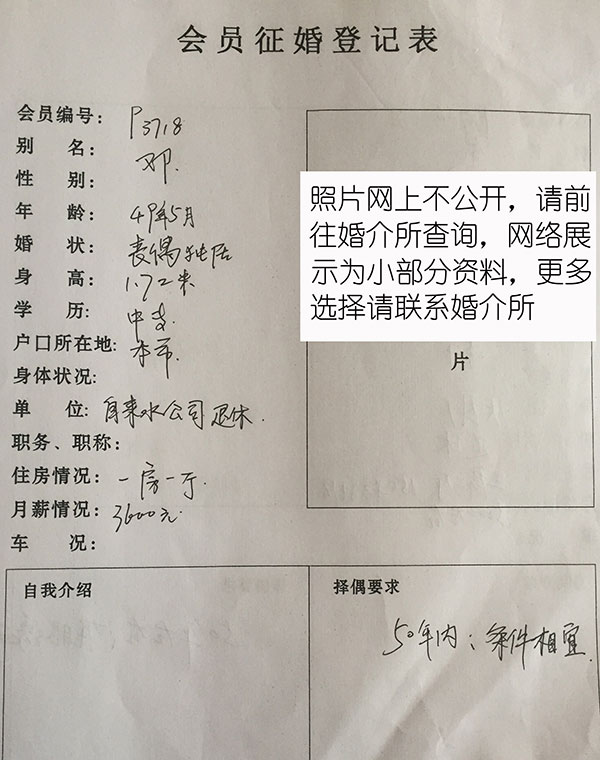 会员征婚登记表
会员编号: P3718
别 名: 邓
性 别:
年 龄: 49年5月
婚 状: 丧偶独居
身 高: 1.72米
学 历: 中专
户口所在地: 本市
身体状况:
单 位: 自来水公司退休.
职务、职称:
住房情况: 一房一厅.
月薪情况: 3600元
车 况:
照片网上不公开，请前
往婚介所查询，网络展
示为小部分资料，更多
选择请联系婚介所
片
自我介绍
择偶要求
50年内；条件相宜